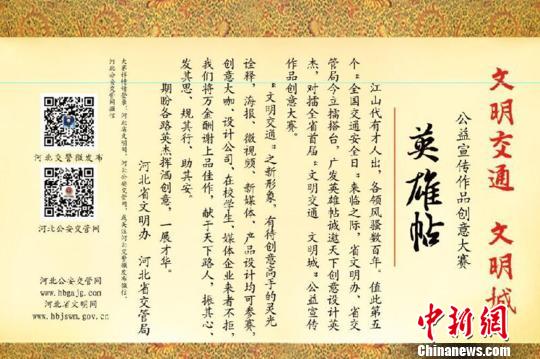 文明交通 文明城
公益宣传作品创意大赛
英雄帖
江山代有才人出，各领风骚数百年。值此第五
个“全国交通安全日”来临之际，省文明办、省交
管局今立擂搭台，广发英雄帖诚邀天下创意设计英
杰，对擂全省首届“文明交通 文明城”公益宣传
作品创意大赛。
“文明交通”之新形象，有待创意高手的灵光
诠释，海报、微视频、新媒体、产品设计均可参赛，
创意大咖、设计公司、在校学生、媒体企业来者不拒，
我们将万金酬谢上品佳作，献于天下路人，振其心、
发其思、规其行、助其安。
期盼各路英杰挥洒创意，一展才华。
河北省文明办 河北省交管局
大赛详情请登录：河北省文明网、河北公安交管网，或关注河北交警微发布微信、
河北公安交管网微信
河北交警微发布
河北公安交管网
河北公安交管网
www.hbgajg.com
河北省文明网
www.hbjswm.gov.cn
中新网
Chinanews.com